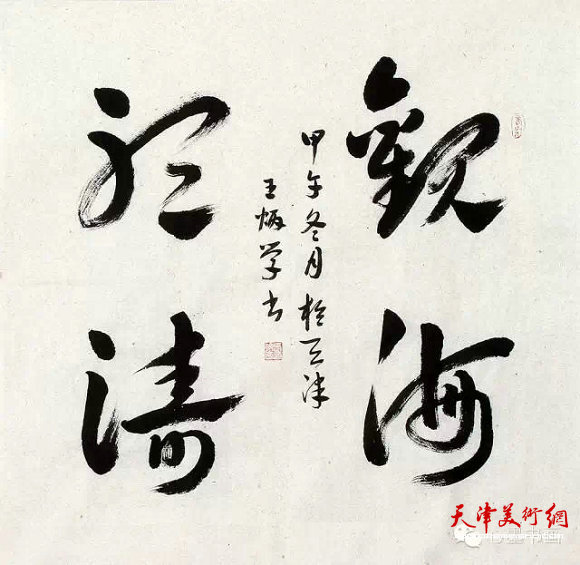 觀海
聽濤
甲午冬月於天津
王炳学书
天津美術網